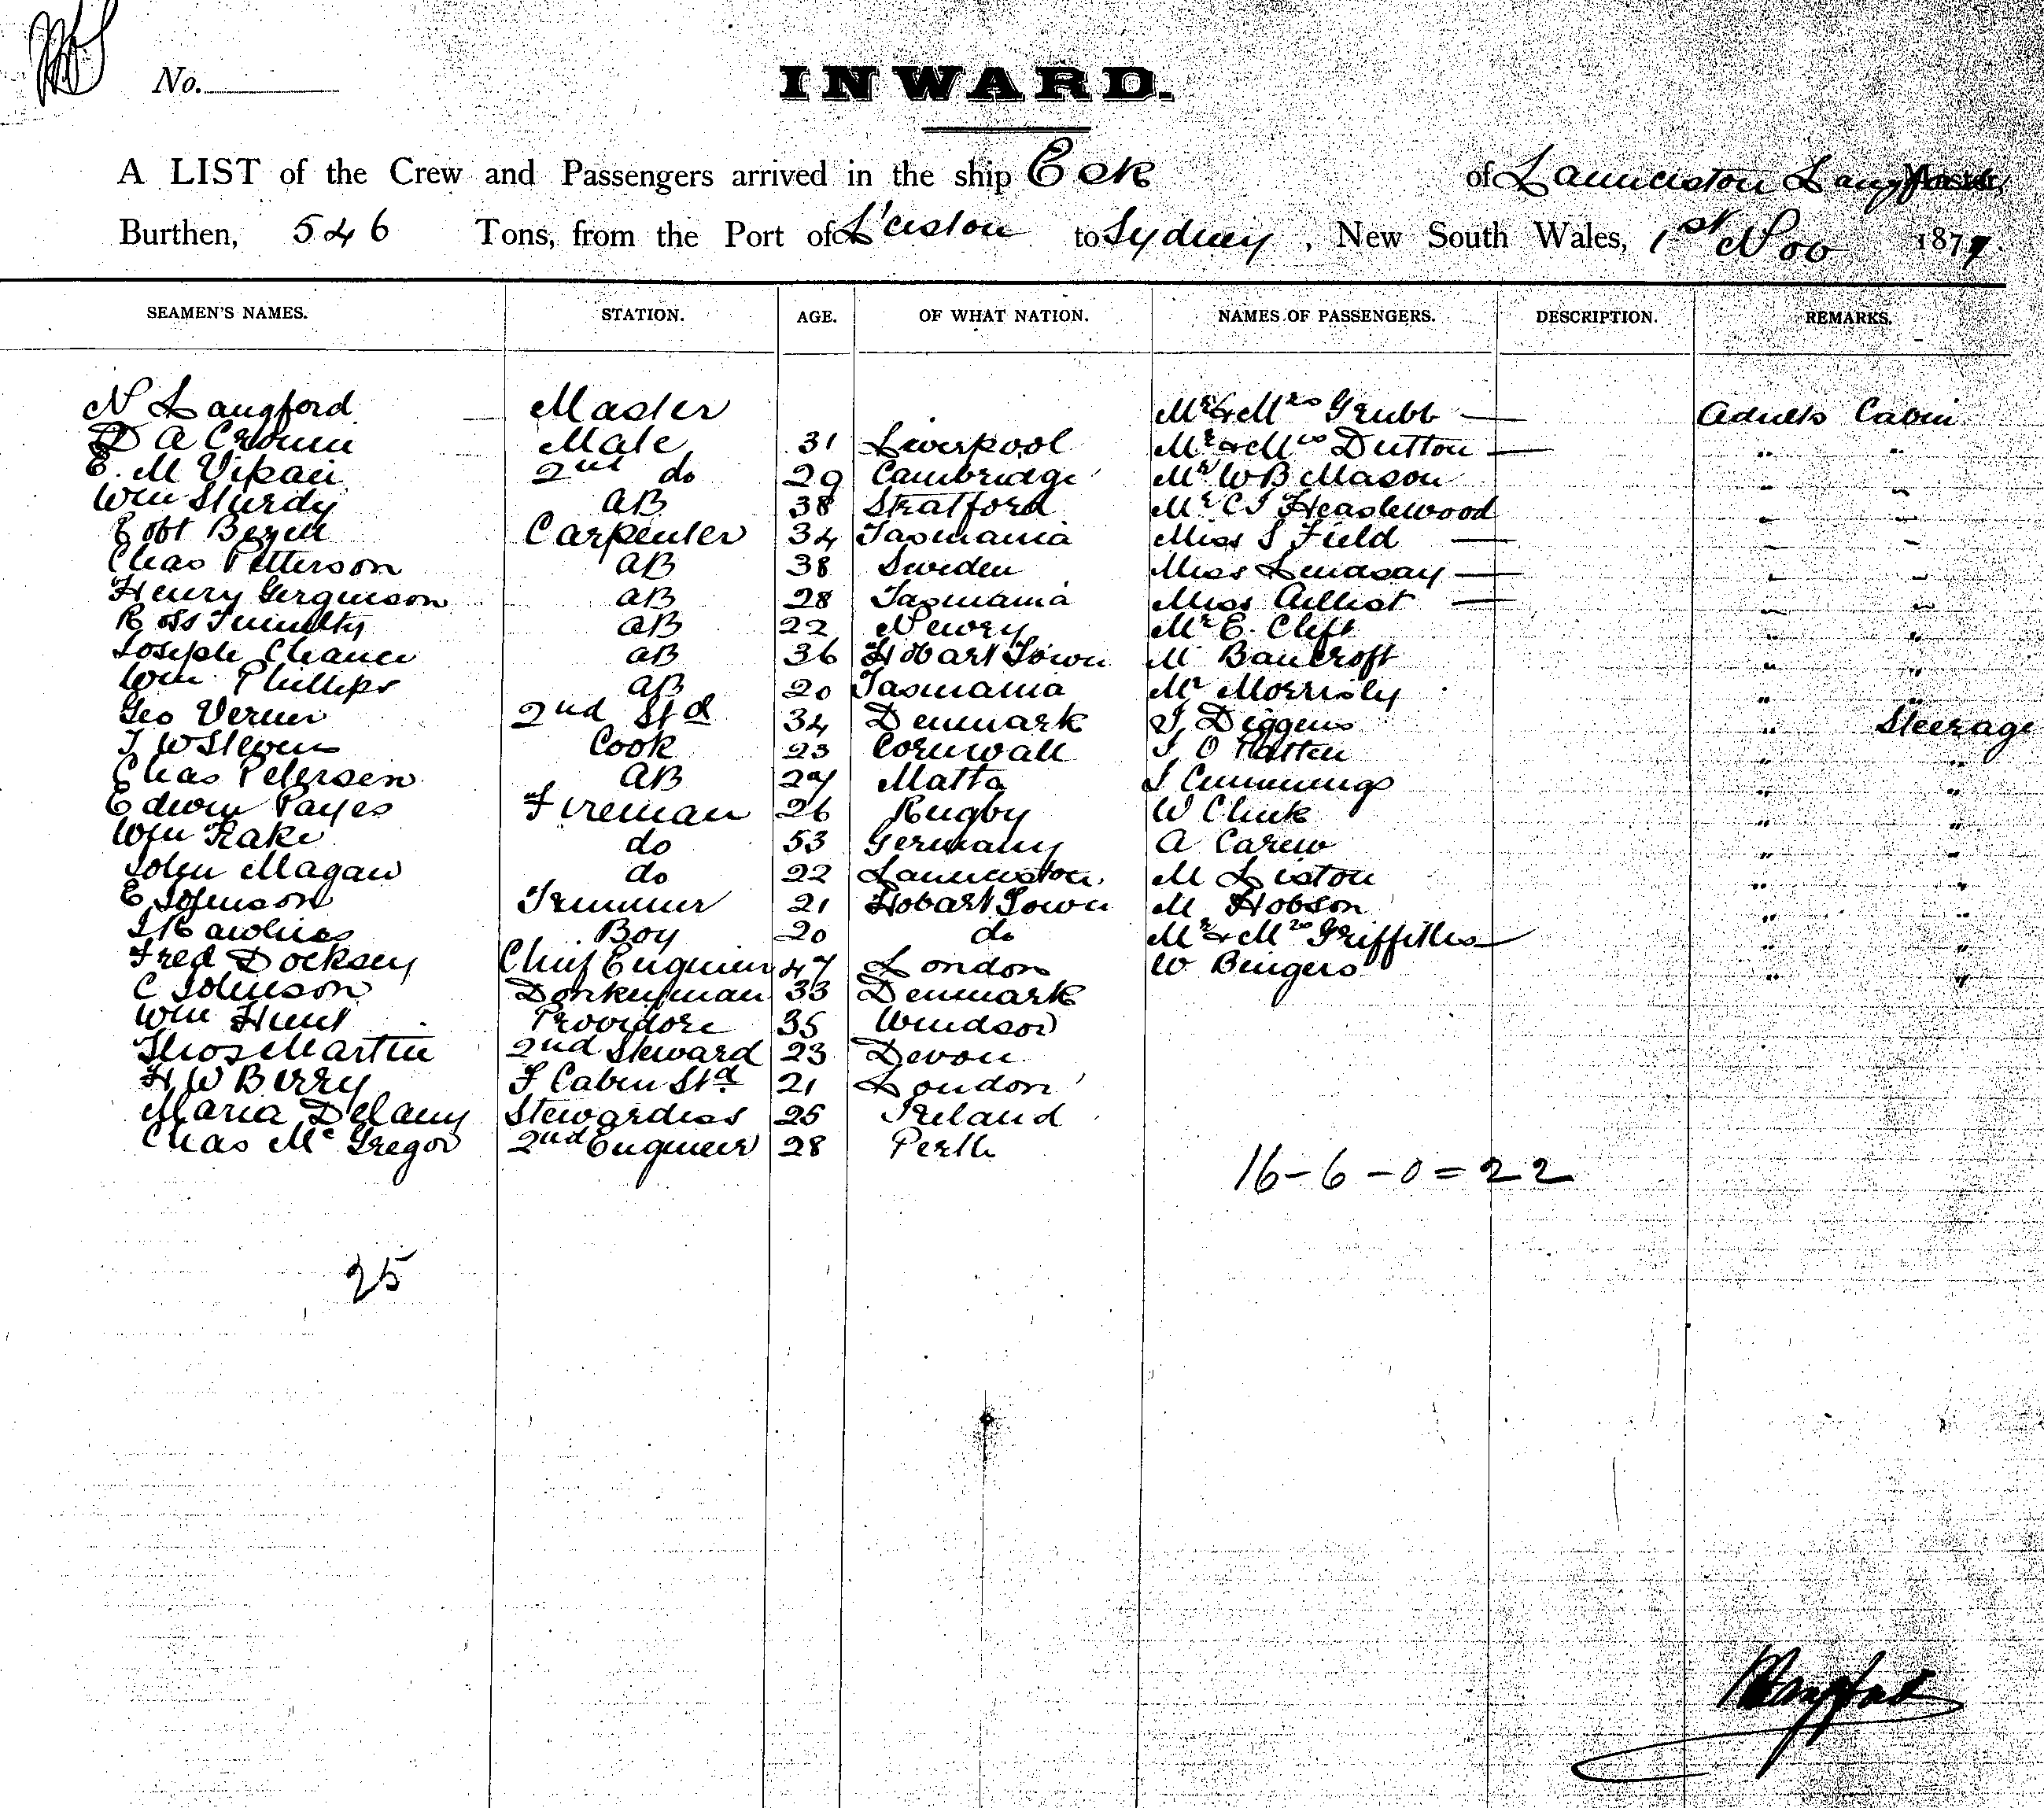 No.
INWARD.
A LIST of the Crew and Passengers arrived in the ship Esk of Launceston Langford Master,
Burthen, 546 Tons, from the Port of L'ceston to Sydney, New South Wales, 1st Nov 1879.
SEAMEN'S NAMES. STATION. AGE. OF WHAT NATION. NAMES OF PASSENGERS. DESCRIPTION. REMARKS.
N Langford Master Mr & Mrs Grubb — Adults Cabin
D A Mate 31 Liverpool Mr & Mrs Dutton — " "
E. M 2nd do 29 Cambridge Mr W B Mason " "
Wm Sturdy AB 38 Stratford Mr C J Heazlewood " "
Robt Carpenter 34 Tasmania Miss S Field — " "
Chas Petterson AB 38 Sweden Miss Lindsay — " "
Henry Gerguison AB 28 Tasmania Miss — " "
Ross AB 22 Newry Mr E. Clift " "
Joseph Chance AB 36 Hobart Town M Bancroft " "
Wm Phillips AB 20 Tasmania Mr Morrisby "
Geo Verner 2nd Std 34 Denmark J Diggens " Steerage
J W Stevens Cook 23 Cornwall J O " "
Chas Petersen AB 27 Malta J Cummings " "
Edwin Payes Fireman 26 Rugby W " "
Wm Rake do 53 Germany A Carew " "
John Magaw do 22 Launceston M Liston " "
E Johnson Trimmer 21 Hobart Town M Hobson " "
J Rawlins Boy 20 do Mr & Mrs Griffiths — " "
Fred Docksey Chief Engineer 47 London W Bingers " "
C Johnson Donkeyman 33 Denmark
Wm Hunt Providore 35 Windsor
Thos Martin 2nd Steward 23 Devon
H W Berry F Cabin Std 21 London
Maria Delany Stewardess 25 Ireland
Chas McGregor 2nd Engineer 28 Perth
16 - 6 - 0 = 22
25
Langford